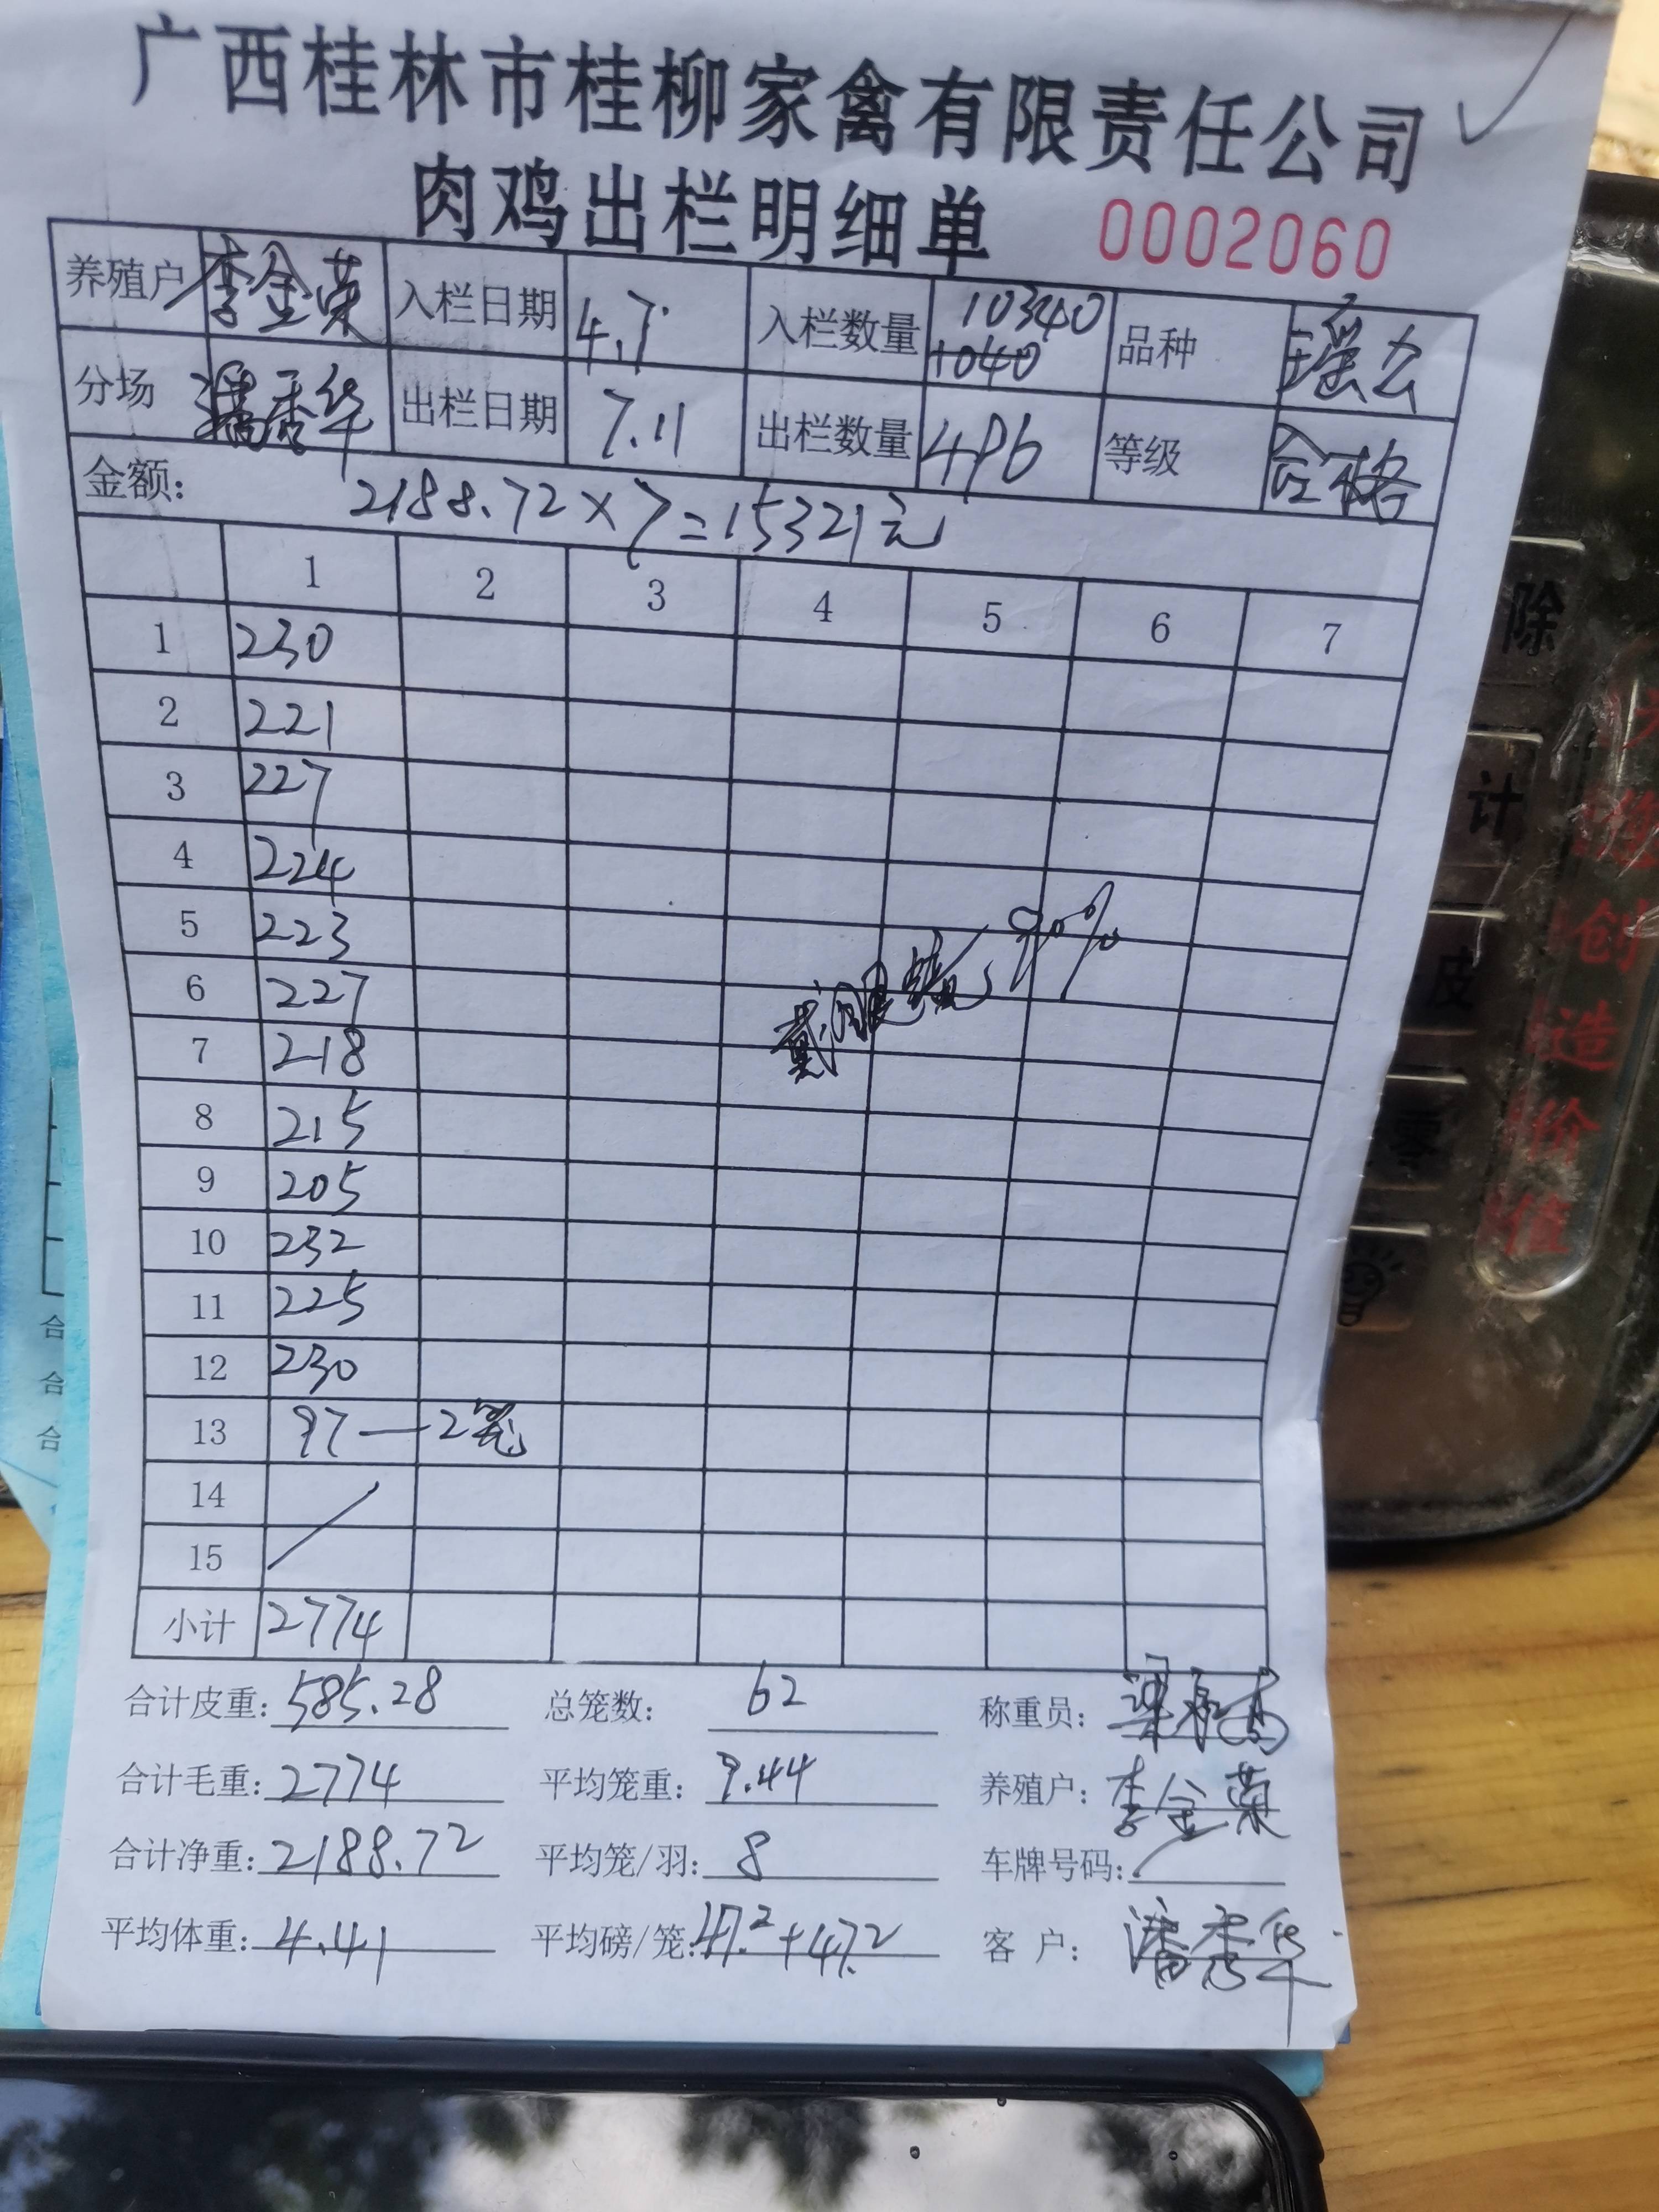 广西桂林市桂柳家禽有限责任公司
肉鸡出栏明细单 0002060
养殖户 李金荣 入栏日期 4.7 入栏数量 10340 品种 瑶公
分场 潘秀华 出栏日期 7.11 出栏数量 496 等级 合格
金额: 2188.72×7=15321元
1 2 3 4 5 6 7
1 230
2 221
3 227
4 224
5 223
6 227
7 218
8 215
9 205
10 232
11 225
12 230
13 97—2笼
14
15
戴眼镜90%
小计 2774
合计皮重: 585.28 总笼数: 62 称重员:
合计毛重: 2774 平均笼重: 9.44 养殖户: 李金荣
合计净重: 2188.72 平均笼/羽: 8 车牌号码:
平均体重: 4.41 平均磅/笼: 47.2+47.2 客户: 潘秀华
除
计
皮
零
创
造
价
值
合
合
合